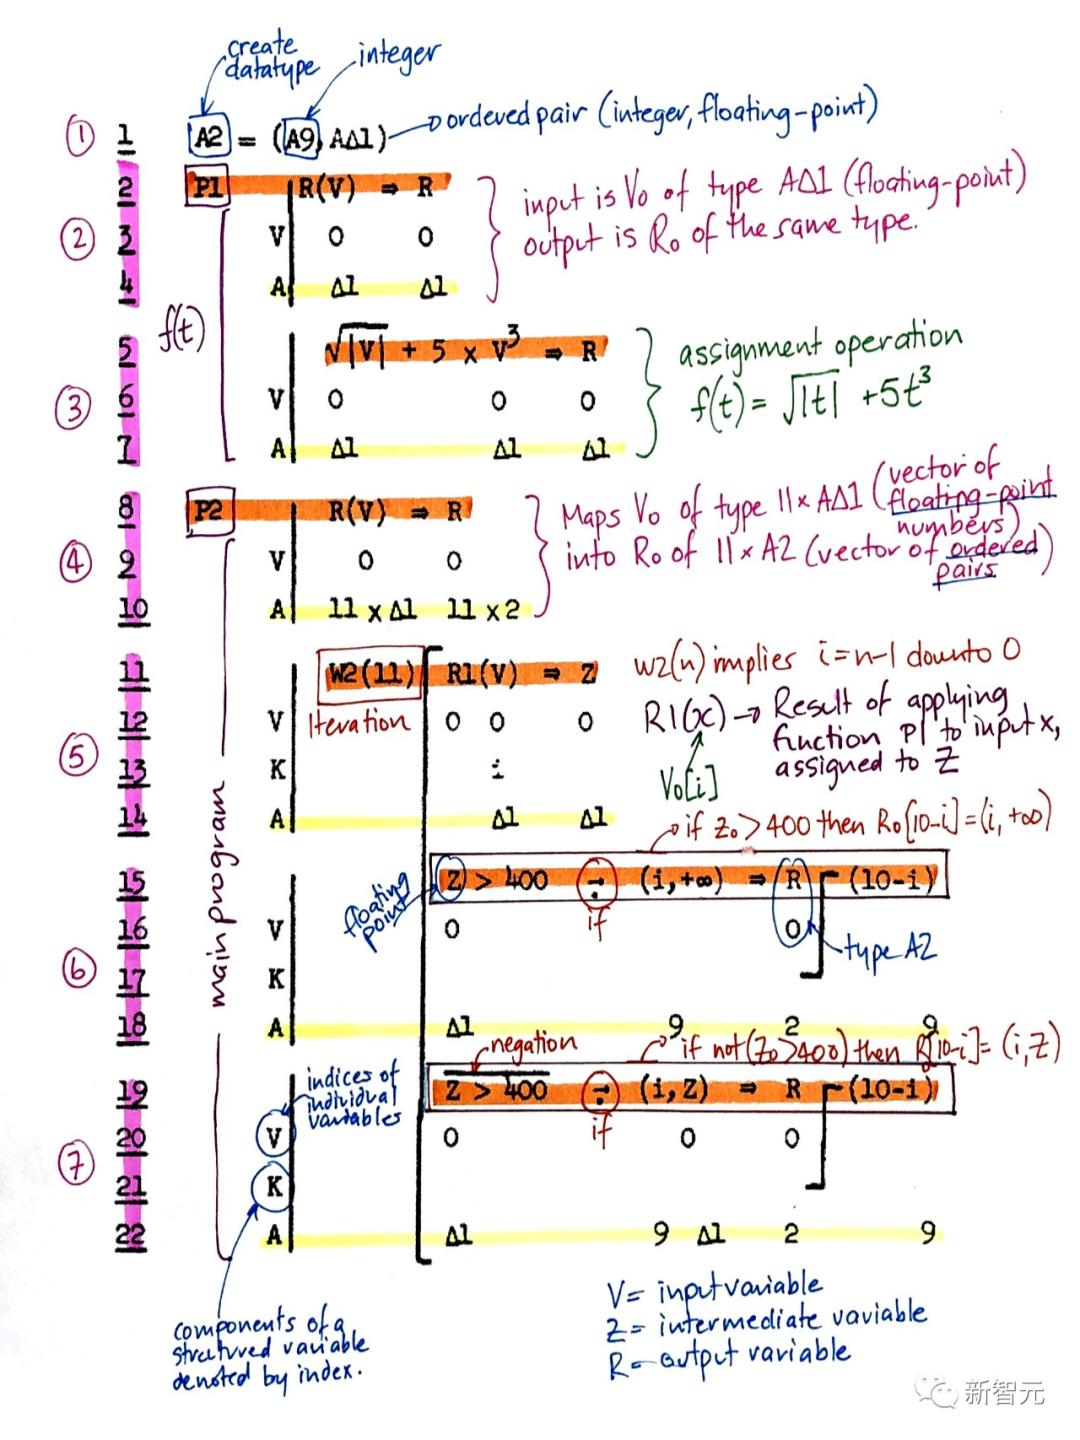 create
datatype
integer
① 1 A2 = (A9, AΔ1) ordered pair (integer, floating-point)
2 P1 R(V) ⇒ R
② 3 V 0 0
4 A Δ1 Δ1
input is V₀ of type AΔ1 (floating-point)
output is R₀ of the same type.
f(t)
5 √|V| + 5 × V³ ⇒ R
③ 6 V 0 0 0
7 A Δ1 Δ1 Δ1
assignment operation
f(t) = √|t| + 5t³
8 P2 R(V) ⇒ R
④ 9 V 0 0
10 A 11 × Δ1 11 × 2
Maps V₀ of type 11 × AΔ1 (vector of
floating-point
numbers)
into R₀ of 11 × A2 (vector of ordered)
pairs
main program
11 W2(11) R1(V) ⇒ Z
12 V Iteration 0 0 0
⑤ 13 K i
14 A Δ1 Δ1
W2(n) implies i=n-1 downto 0
R1(x) → Result of applying
function P1 to input x,
assigned to Z
V₀[i]
if Z₀ > 400 then R₀[10-i] = (i, +∞)
15 Z > 400 ⨪ (i,+∞) ⇒ R (10-i)
floating
point
if
16 V 0 0
type A2
⑥ 17 K
18 A Δ1 9 2 9
negation
if not (Z₀>400) then R[10-i] = (i, Z)
19 Z > 400 ⨪ (i,Z) ⇒ R (10-i)
indices of
individual
variables
if
20 V 0 0 0
⑦ 21 K
22 A Δ1 9 Δ1 2 9
components of a
structured variable
denoted by index.
V = input variable
Z = intermediate variable
R = output variable
新智元